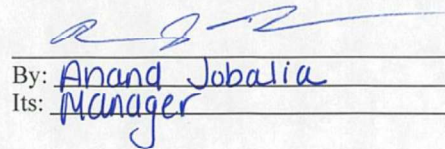 By: Anand Jobalia
Its: Manager